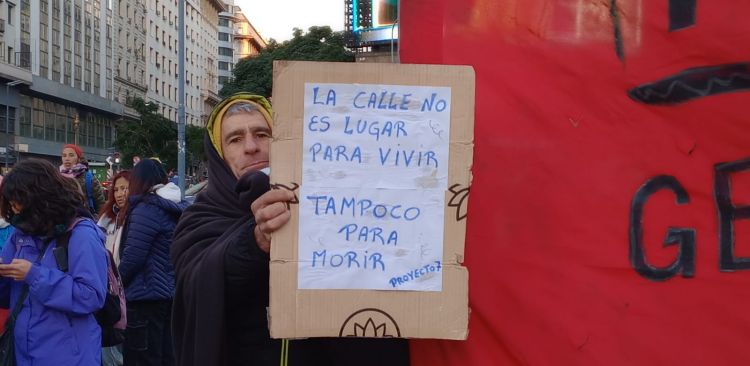 LA CALLE NO
ES LUGAR
PARA VIVIR
TAMPOCO
PARA
MORIR
PROYECTO7
GE